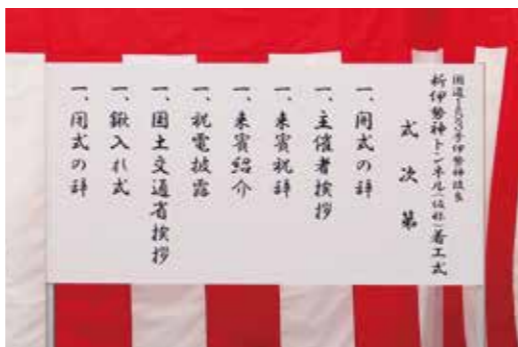 国道153号伊勢神改良
新伊勢神トンネル(仮称)着工式
式次第
一、開式の辞
一、主催者挨拶
一、来賓祝辞
一、来賓紹介
一、祝電披露
一、国土交通省挨拶
一、鍬入れ式
一、閉式の辞